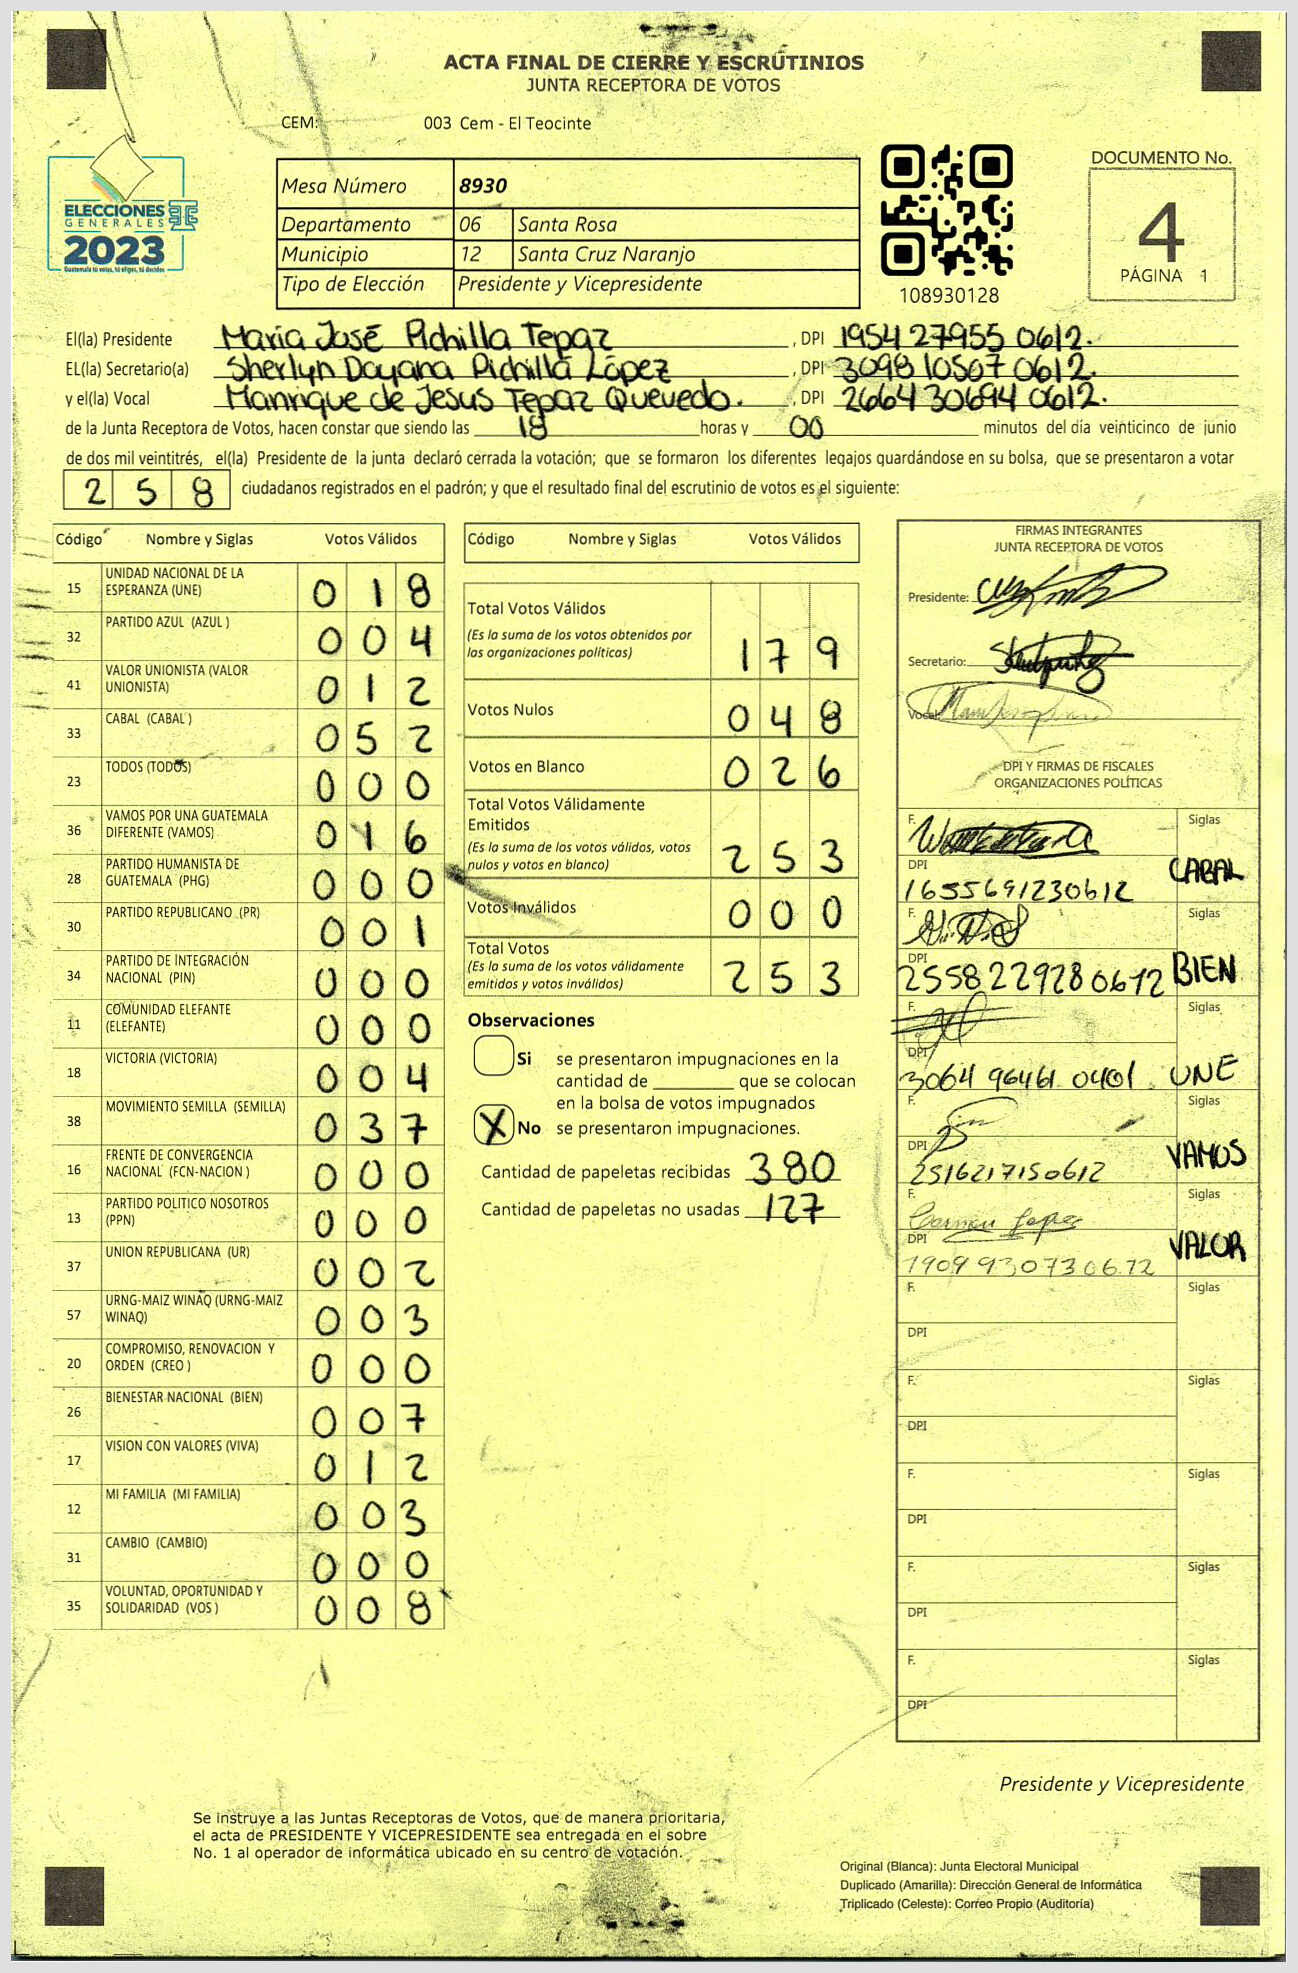 ACTA FINAL DE CIERRE Y ESCRUTINIOS
JUNTA RECEPTORA DE VOTOS
CEM: 003 Cem - El Teocinte
ELECCIONES
GENERALES
2023
Guatemala tú votas, tú eliges, tú decides
Mesa Número 8930
Departamento 06 Santa Rosa
Municipio 12 Santa Cruz Naranjo
Tipo de Elección Presidente y Vicepresidente
108930128
DOCUMENTO No.
4
PÁGINA 1
El(la) Presidente María José Pichilla Tepaz, DPI 1954 27955 0612.
EL(la) Secretario(a) Sherlyn Dayana Pichillá López, DPI 3098 10507 0612.
y el(la) Vocal Manrique de Jesus Tepaz Quevedo., DPI 2664 30694 0612.
de la Junta Receptora de Votos, hacen constar que siendo las 18 horas y 00 minutos del día veinticinco de junio
de dos mil veintitrés, el(la) Presidente de la junta declaró cerrada la votación; que se formaron los diferentes legajos guardándose en su bolsa, que se presentaron a votar
258 ciudadanos registrados en el padrón; y que el resultado final del escrutinio de votos es el siguiente:
Código Nombre y Siglas Votos Válidos
15 UNIDAD NACIONAL DE LA ESPERANZA (UNE) 018
32 PARTIDO AZUL (AZUL ) 004
41 VALOR UNIONISTA (VALOR UNIONISTA) 012
33 CABAL (CABAL ) 052
23 TODOS (TODOS) 000
36 VAMOS POR UNA GUATEMALA DIFERENTE (VAMOS) 016
28 PARTIDO HUMANISTA DE GUATEMALA (PHG) 000
30 PARTIDO REPUBLICANO (PR) 001
34 PARTIDO DE INTEGRACIÓN NACIONAL (PIN) 000
11 COMUNIDAD ELEFANTE (ELEFANTE) 000
18 VICTORIA (VICTORIA) 004
38 MOVIMIENTO SEMILLA (SEMILLA) 037
16 FRENTE DE CONVERGENCIA NACIONAL (FCN-NACION ) 000
13 PARTIDO POLITICO NOSOTROS (PPN) 000
37 UNION REPUBLICANA (UR) 002
57 URNG-MAIZ WINAQ (URNG-MAIZ WINAQ) 003
20 COMPROMISO, RENOVACION Y ORDEN (CREO ) 000
26 BIENESTAR NACIONAL (BIEN) 007
17 VISION CON VALORES (VIVA) 012
12 MI FAMILIA (MI FAMILIA) 003
31 CAMBIO (CAMBIO) 000
35 VOLUNTAD, OPORTUNIDAD Y SOLIDARIDAD (VOS ) 008
Código Nombre y Siglas Votos Válidos
Total Votos Válidos
(Es la suma de los votos obtenidos por
las organizaciones políticas) 179
Votos Nulos 048
Votos en Blanco 026
Total Votos Válidamente
Emitidos
(Es la suma de los votos válidos, votos
nulos y votos en blanco) 253
Votos Inválidos 000
Total Votos
(Es la suma de los votos válidamente
emitidos y votos inválidos) 253
Observaciones
Si se presentaron impugnaciones en la
cantidad de ________ que se colocan
en la bolsa de votos impugnados
X No se presentaron impugnaciones.
Cantidad de papeletas recibidas 380
Cantidad de papeletas no usadas 127
FIRMAS INTEGRANTES
JUNTA RECEPTORA DE VOTOS
Presidente:
Secretario:
Vocal:
DPI Y FIRMAS DE FISCALES
ORGANIZACIONES POLÍTICAS
F. Siglas
DPI CABAL
1655691230612
F. Siglas
DPI BIEN
2558 22928 0612
F. Siglas
DPI
3064 96461 0401. UNE
F. Siglas
DPI VAMOS
2516217150612
F. Carmen Lopez Siglas
DPI VALOR
1909 93073 0612
F. Siglas
DPI
F. Siglas
DPI
F. Siglas
DPI
F. Siglas
DPI
F. Siglas
DPI
Presidente y Vicepresidente
Se instruye a las Juntas Receptoras de Votos, que de manera prioritaria,
el acta de PRESIDENTE Y VICEPRESIDENTE sea entregada en el sobre
No. 1 al operador de informática ubicado en su centro de votación.
Original (Blanca): Junta Electoral Municipal
Duplicado (Amarilla): Dirección General de Informática
Triplicado (Celeste): Correo Propio (Auditoría)